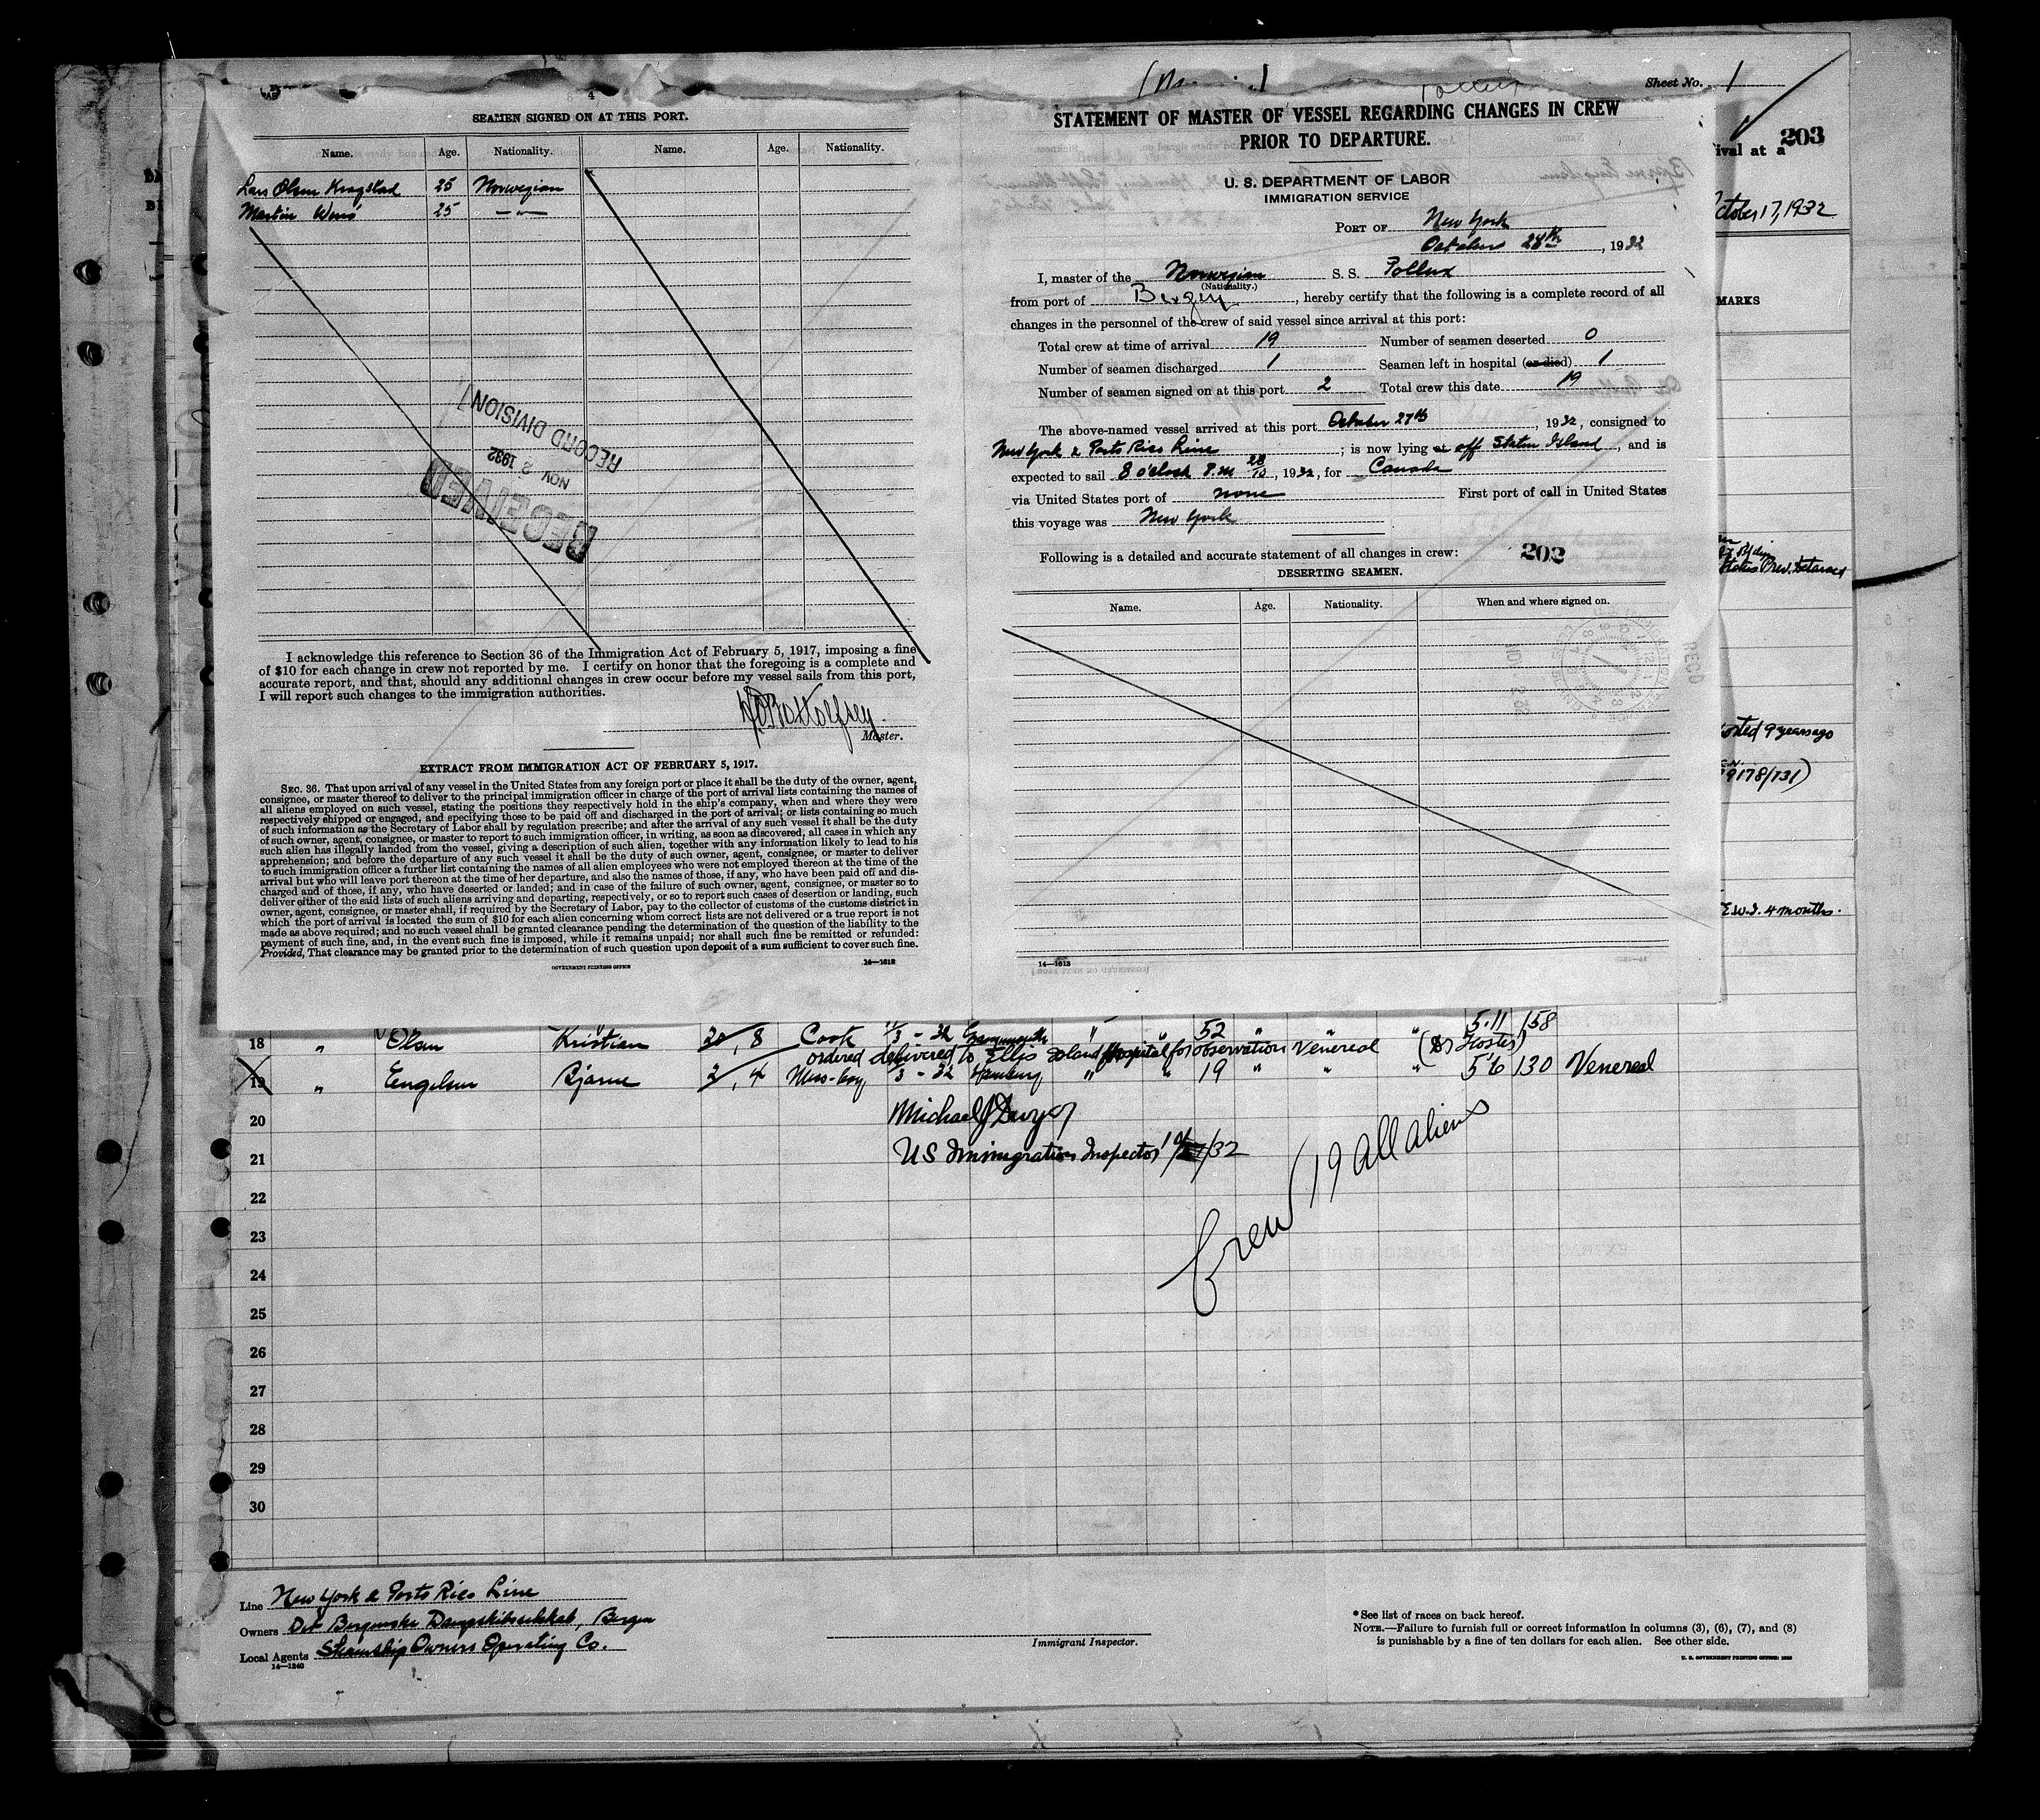 4
SEAMEN SIGNED ON AT THIS PORT.
Name. Age. Nationality. Name. Age. Nationality.
Lars Olsen Kragstad 25 Norwegian
Martin 25 — " —
RECORD DIVISION
NOV 2 1932
RECEIVED
I acknowledge this reference to Section 36 of the Immigration Act of February 5, 1917, imposing a fine
of $10 for each change in crew not reported by me. I certify on honor that the foregoing is a complete and
accurate report, and that, should any additional changes in crew occur before my vessel sails from this port,
I will report such changes to the immigration authorities.
Master.
EXTRACT FROM IMMIGRATION ACT OF FEBRUARY 5, 1917.
SEC. 36. That upon arrival of any vessel in the United States from any foreign port or place it shall be the duty of the owner, agent,
consignee, or master thereof to deliver to the principal immigration officer in charge of the port of arrival lists containing the names of
all aliens employed on such vessel, stating the positions they respectively hold in the ship's company, when and where they were
respectively shipped or engaged, and specifying those to be paid off and discharged in the port of arrival; or lists containing so much
of such information as the Secretary of Labor shall by regulation prescribe; and after the arrival of any such vessel it shall be the duty
of such owner, agent, consignee, or master to report to such immigration officer, in writing, as soon as discovered, all cases in which any
such alien has illegally landed from the vessel, giving a description of such alien, together with any information likely to lead to his
apprehension; and before the departure of any such vessel it shall be the duty of such owner, agent, consignee, or master to deliver
to such immigration officer a further list containing the names of all alien employees who were not employed thereon at the time of the
arrival but who will leave port thereon at the time of her departure, and also the names of those, if any, who have been paid off and dis-
charged and of those, if any, who have deserted or landed; and in case of the failure of such owner, agent, consignee, or master so to
deliver either of the said lists of such aliens arriving and departing, respectively, or so to report such cases of desertion or landing, such
owner, agent, consignee, or master shall, if required by the Secretary of Labor, pay to the collector of customs of the customs district in
which the port of arrival is located the sum of $10 for each alien concerning whom correct lists are not delivered or a true report is not
made as above required; and no such vessel shall be granted clearance pending the determination of the question of the liability to the
payment of such fine, and, in the event such fine is imposed, while it remains unpaid; nor shall such fine be remitted or refunded:
Provided, That clearance may be granted prior to the determination of such question upon deposit of a sum sufficient to cover such fine.
GOVERNMENT PRINTING OFFICE 14—1613
Sheet No. 1
STATEMENT OF MASTER OF VESSEL REGARDING CHANGES IN CREW
PRIOR TO DEPARTURE.
U. S. DEPARTMENT OF LABOR
IMMIGRATION SERVICE
PORT OF New York
October 28th, 1932
I, master of the Norwegian S. S. Pollux
(Nationality.)
from port of Bergen, hereby certify that the following is a complete record of all
changes in the personnel of the crew of said vessel since arrival at this port:
Total crew at time of arrival 19 Number of seamen deserted 0
Number of seamen discharged 1 Seamen left in hospital (or died) 1
Number of seamen signed on at this port 2 Total crew this date 19
The above-named vessel arrived at this port October 27th, 1932, consigned to
New York & Porto Rico Line; is now lying at off Staten Island, and is
expected to sail 8 o'clock P.M. 28/10, 1932, for Canada
via United States port of none First port of call in United States
this voyage was New York
Following is a detailed and accurate statement of all changes in crew: 202
DESERTING SEAMEN.
Name. Age. Nationality. When and where signed on.
REC'D
14—1613
203
ival at a
ctober 17, 1932
MARKS
States Prev. Detained
orted 9 years ago
9178/131)
E.W.I. 4 months.
18 " Olsen Kristian 20, 8 Cook 3 - 32 " " 52 " " " 5.11 158
ordered delivered to Ellis Island Hospital for observation Venereal (Dr Foster)
19 " Engelsen Bjarne 2, 4 Mess-boy 3 - 32 Hamburg " " 19 " " " 5'6 130 Venereal
20 Michael J Dwyer
21 US Immigration Inspector
Crew 19 all aliens
22
23
24
25
26
27
28
29
30
Line New York & Porto Rico Line
Owners Det Bergenske Dampskibsselskab, Bergen
Local Agents Steamship Owners Operating Co.
14—1240
Immigrant Inspector.
*See list of races on back hereof.
NOTE.—Failure to furnish full or correct information in columns (3), (6), (7), and (8)
is punishable by a fine of ten dollars for each alien. See other side.
U. S. GOVERNMENT PRINTING OFFICE: